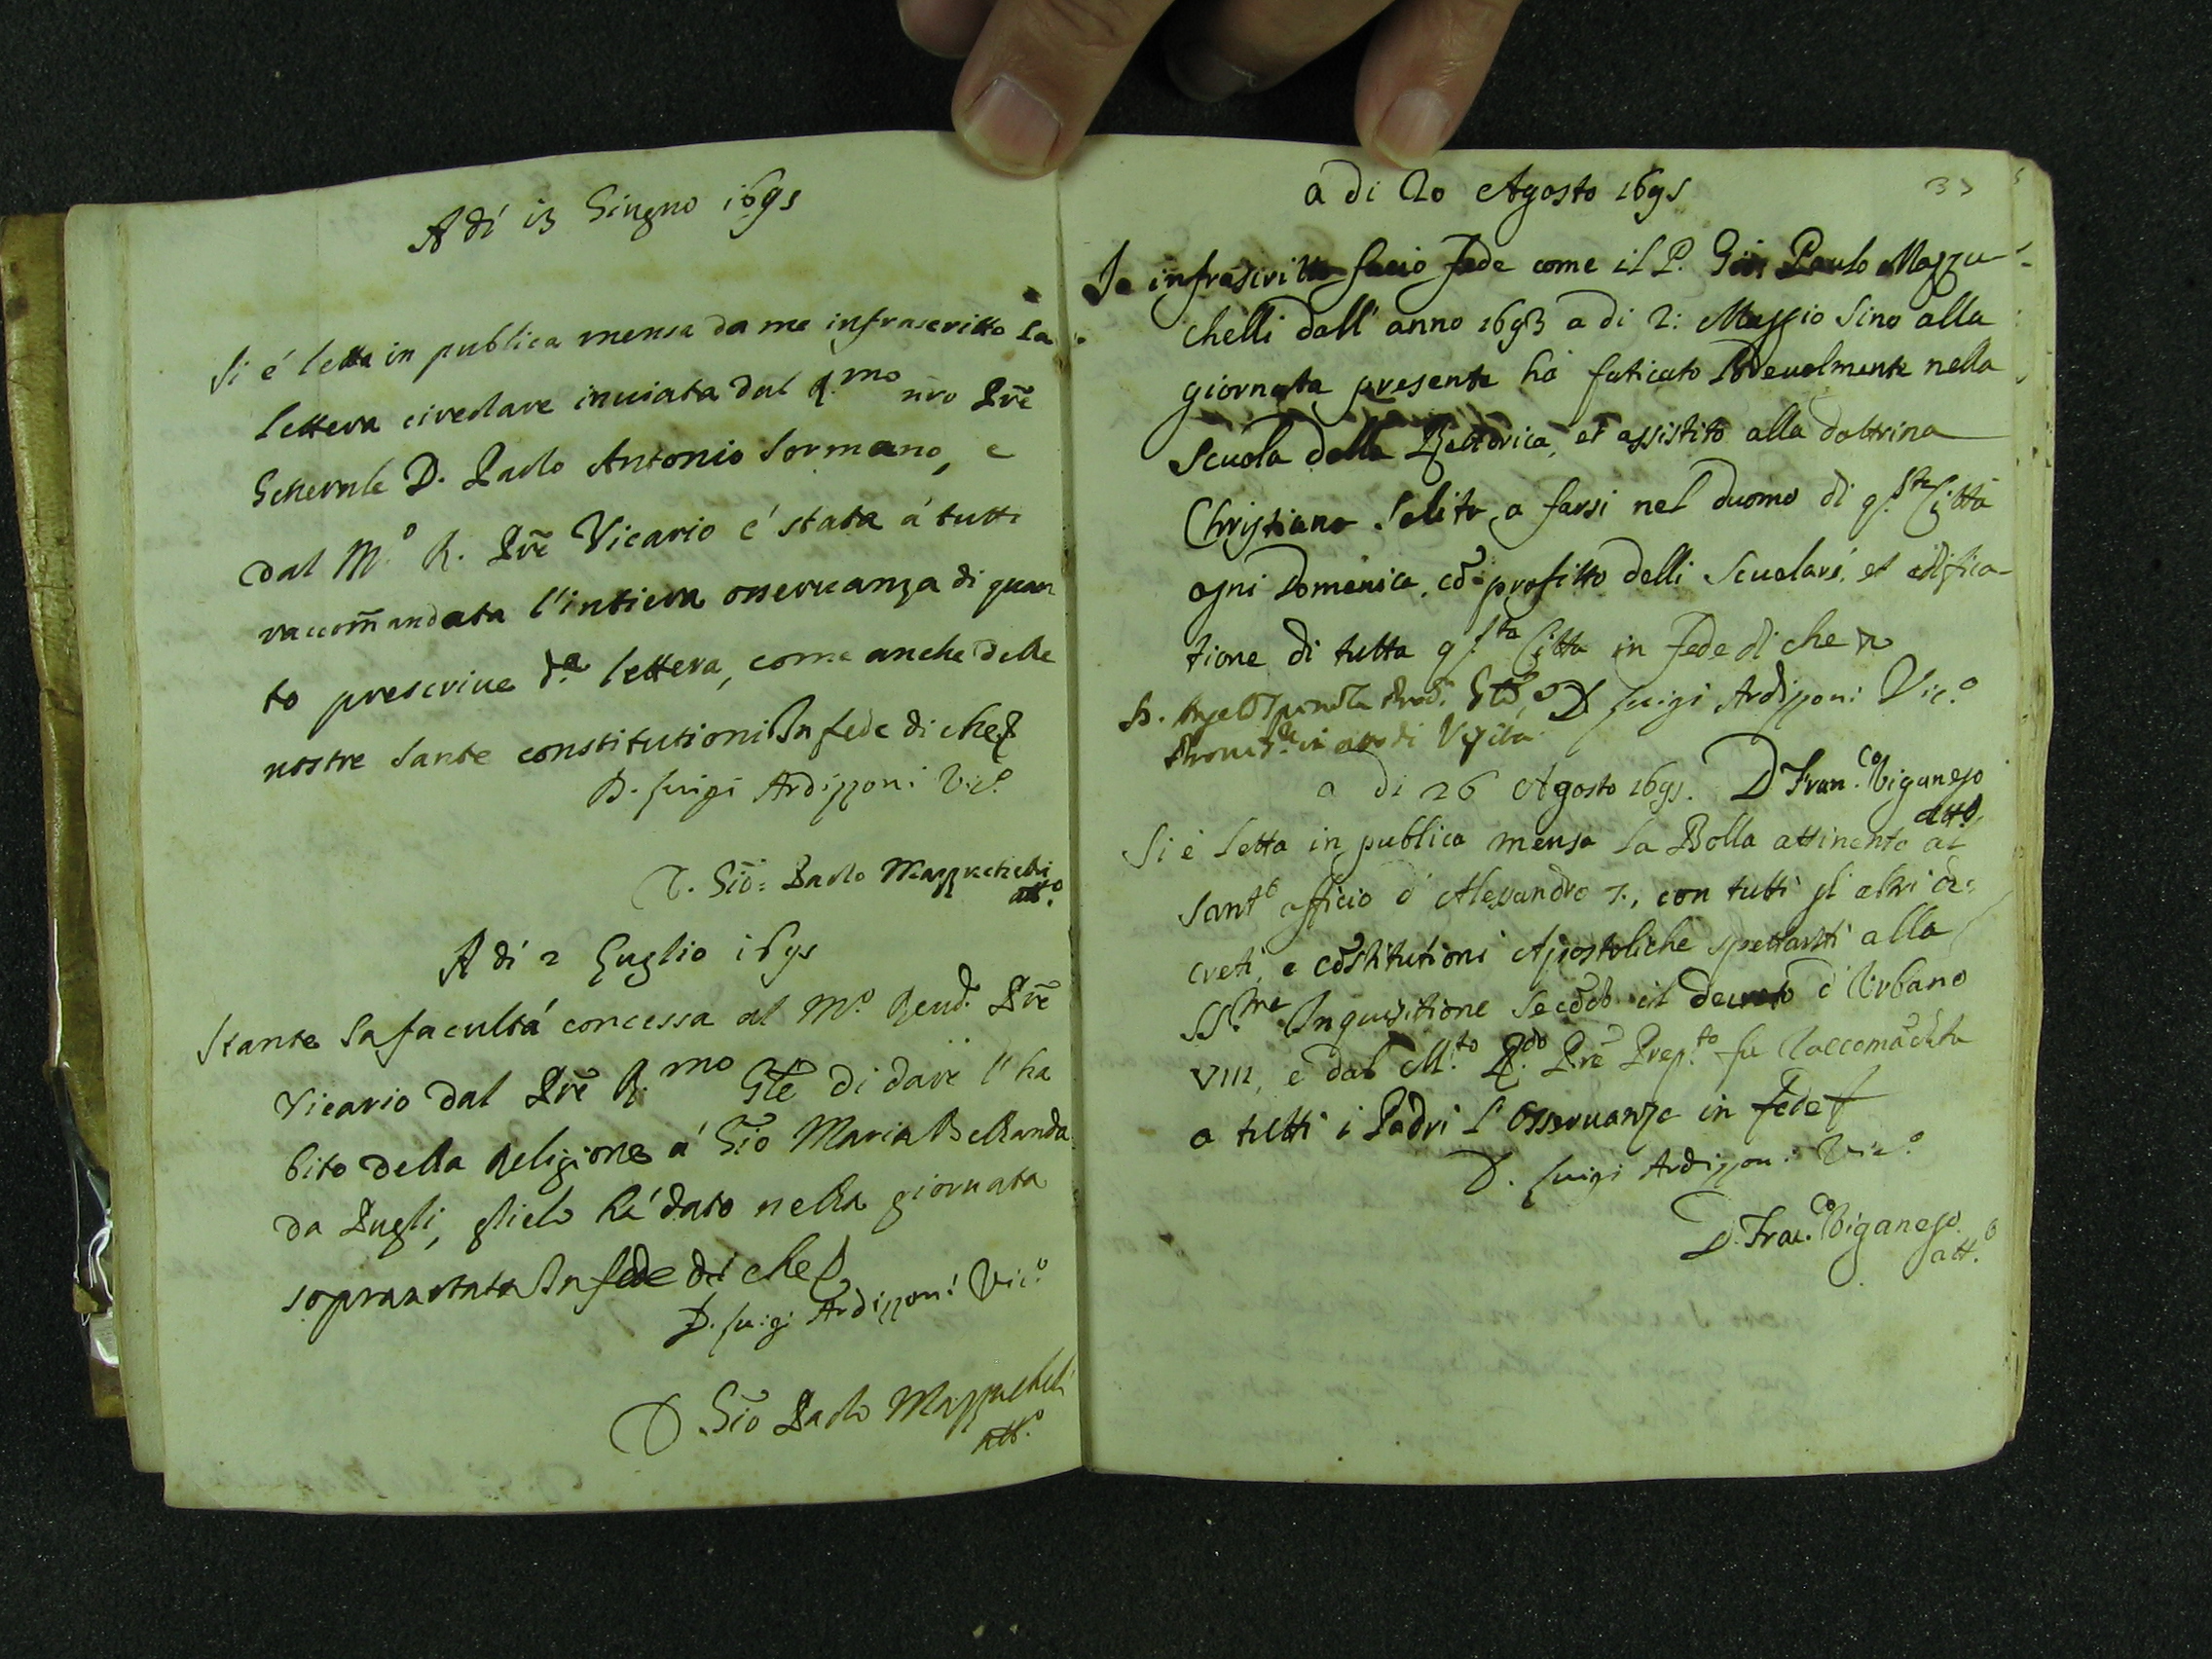 A dí 13 Giugno 1695
Si é letta in publica mensa da me infrascritto la
lettera circolare inuiata dal R.mo nro Pre̅
Generale D. Paolo Antonio Sormano, e
dal M.o R. Pre̅ Vicario é stata á tutti
raccom̅andata l'intiera osseruanza di quan
to prescriue d.a lettera, come anche delle
nostre Sante constitutioni In fede di che
D. Luigi Ardizzoni Vic.o
D. Gio̅: Paolo Mazzuchelli
att.o
A dí 2 Luglio 1695
Stante la facultá concessa al M.o Reud.o Pre̅
Vicario dal Pre̅ R.mo Gle̅ di dare l'ha
bito della Religione á Gio̅ Maria Bellanda
da Pugli, glielo há dato nella giornata
sopranotata In fede di che
D. Luigi Ardizzoni Vic.o
D. Gio̅ Paolo Mazzuchelli
att.o
a di 20 Agosto 1695
33
Io infrascritto faccio fede come il P. Gio: Paulo Mazzu-
chelli dall' anno 1693 a di 2: Maggio sino alla
giornata presente hà faticato lodeuolmente nella
Scuola della Rettorica, et assistito alla dottrina
Christiana solita a farsi nel duomo di q.sta Città
ogni Domenica, co̅ profitto delli Scuolari, et edifica-
tione di tutta q.sta Città in fede di che
D. Luigi Ardizzoni Vic.o
in atto di Visita
a di 26 Agosto 1695. D Fran.co Viganego
att.o
Si è letta in publica mensa la Bolla attinente al
Sant.o officio d' Alessandro 7., con tutti gl' altri de=
creti, e co̅stitutioni Apostoliche spettanti alla
SS.ma Inquisitione seco̅do il decreto d' Vrbano
VIII, e dal M.to R.do Pre̅ Prep.to fu raccoma̅data
a tutti i Padri l' osseruanza in fede
D. Luigi Ardizzoni Vic.o
D. Fra̅c.co Viganego
att.o